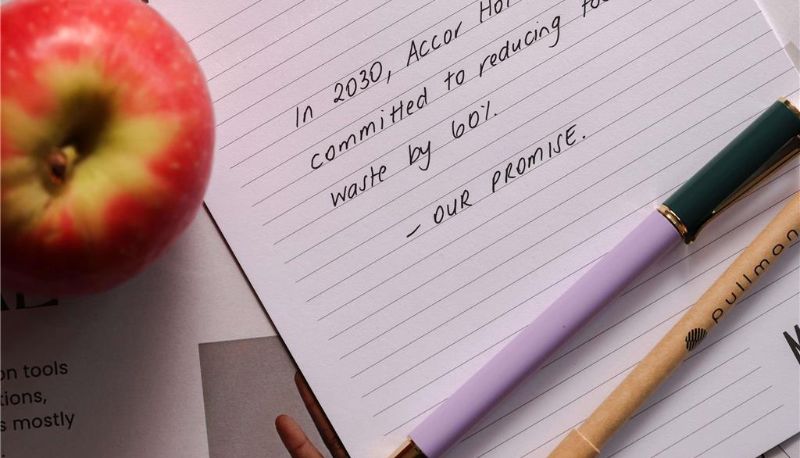 In 2030, Accor
committed to reducing
waste by 60%.
- OUR PROMISE.
pullman
on tools
tions,
s mostly